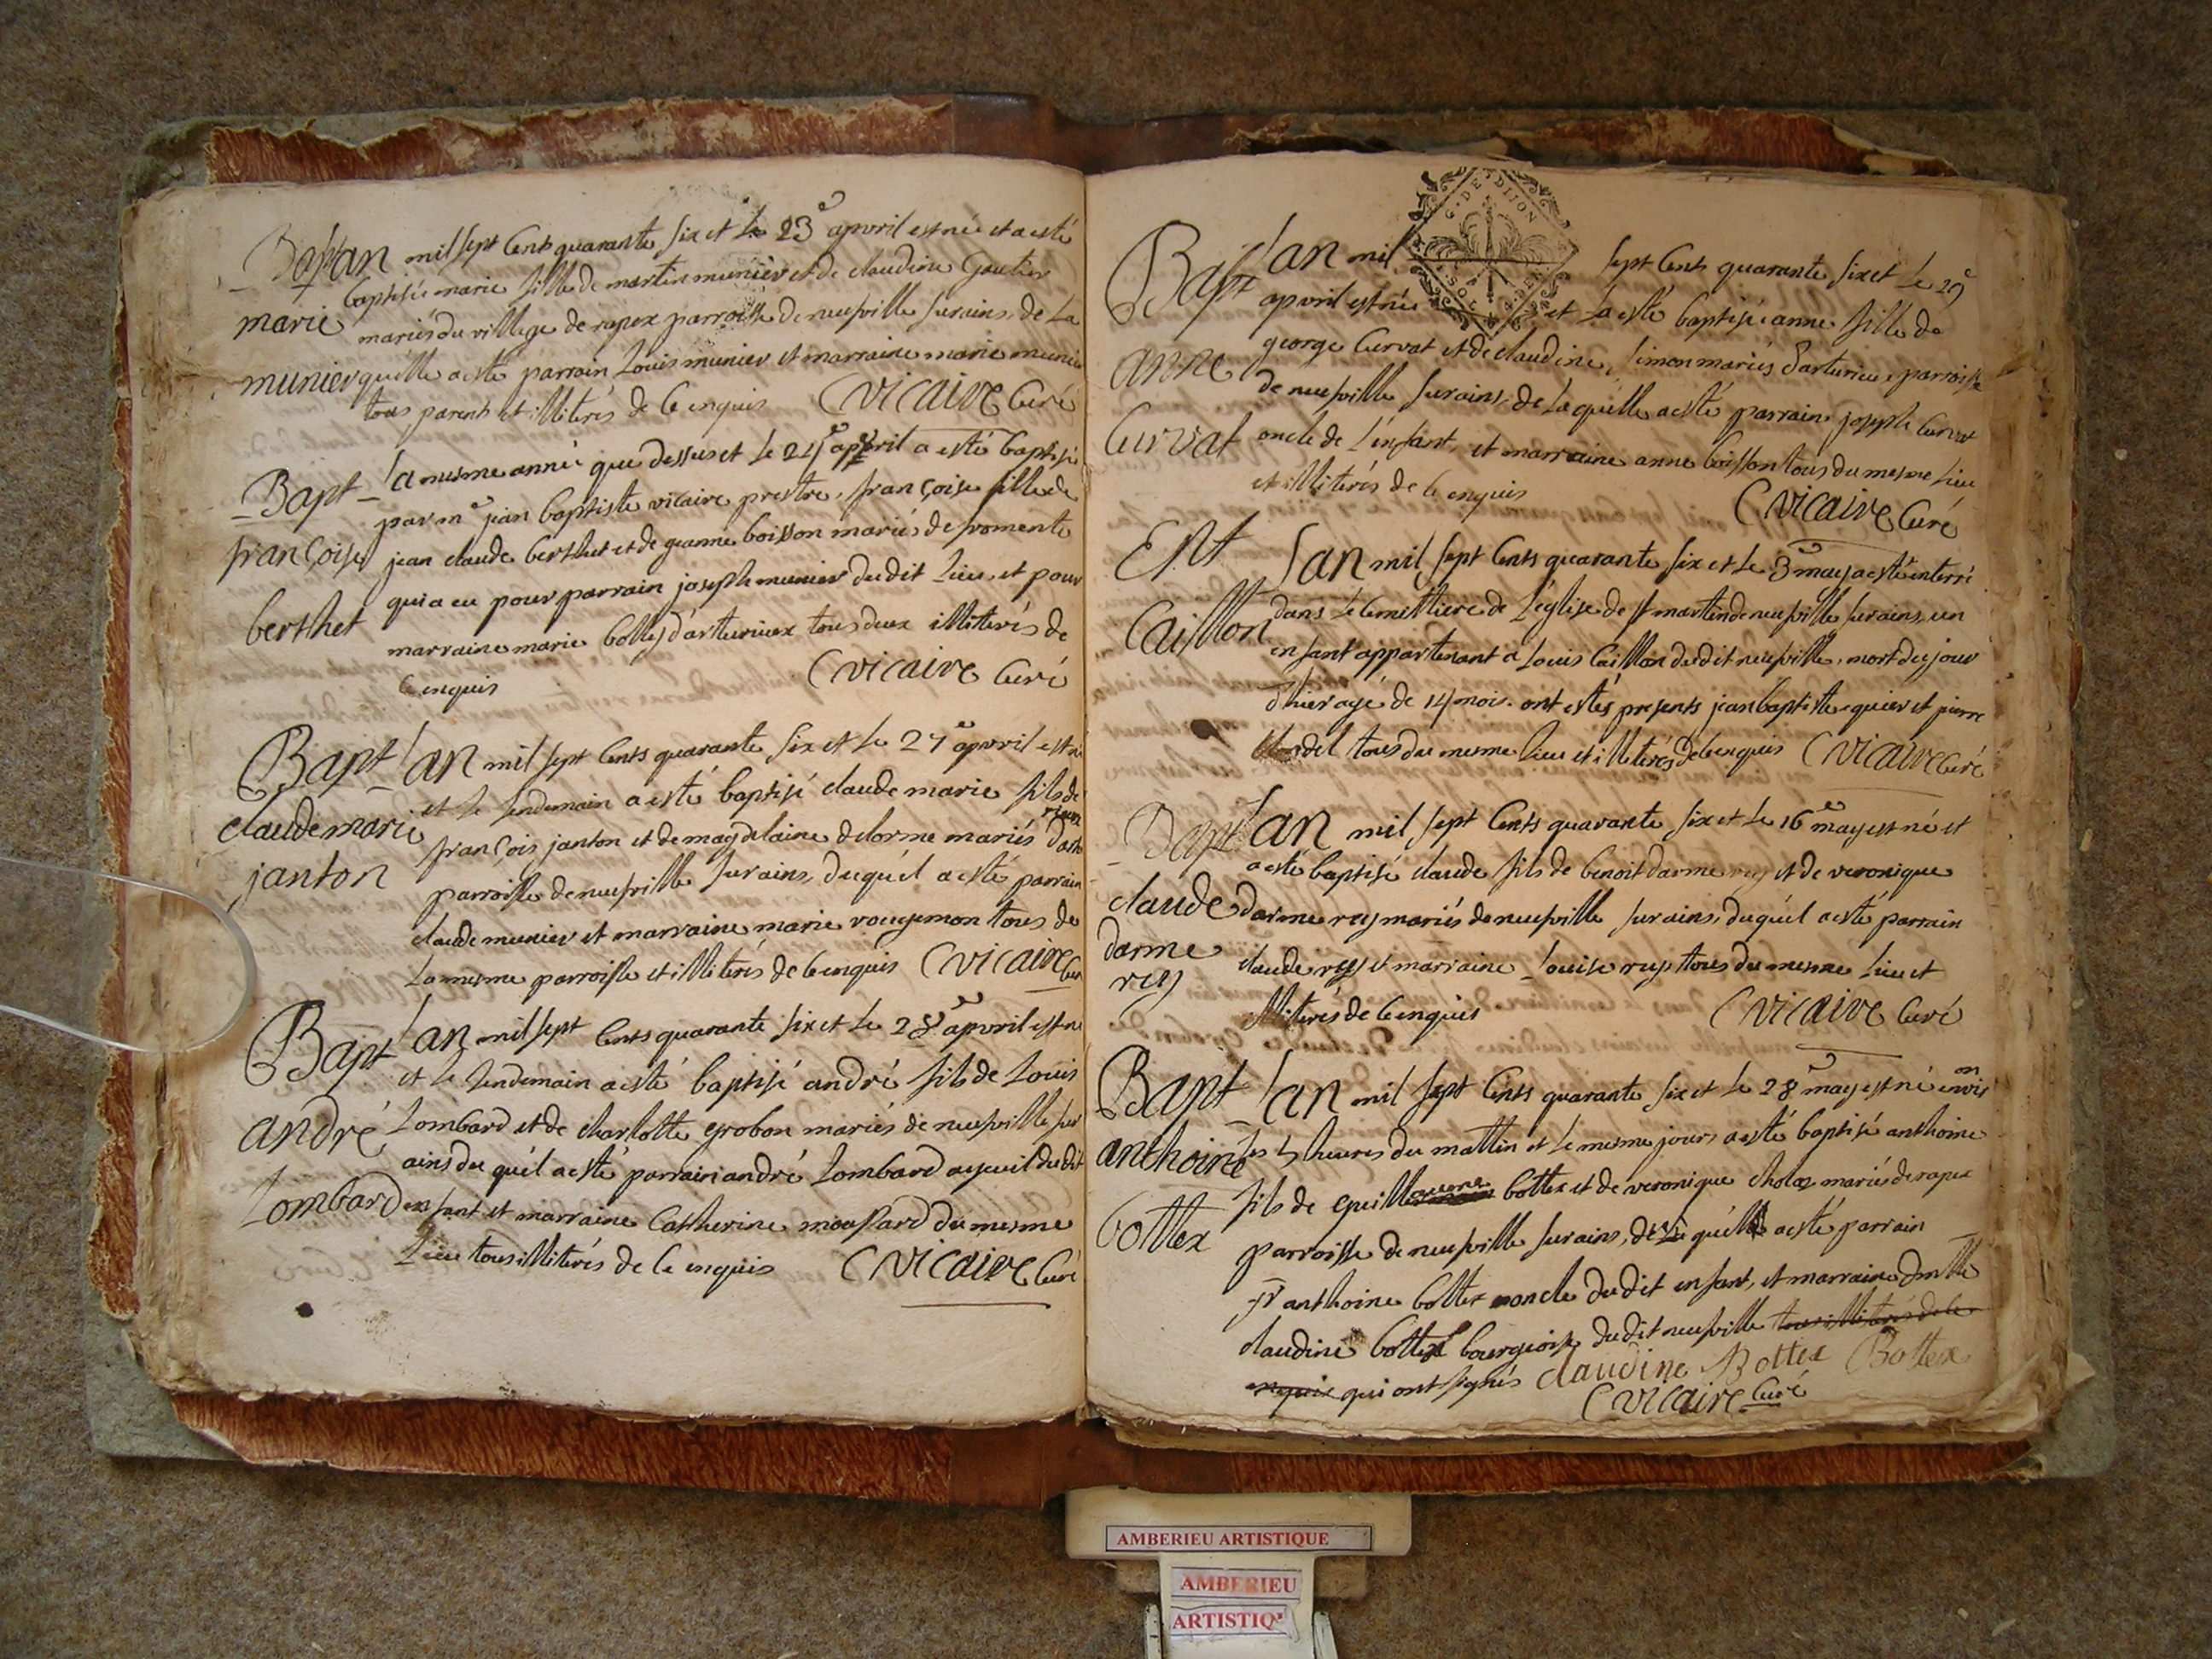 Bapt
marie
munier
L'an mil sept Cents quarante six et le 23e apvril est née et a esté
baptisée marie fille de martin munier et de claudine Gautier
mariés du village de rapex parroisse de neufville surains, de La
quelle a esté parrain Louis munier et marraine marie munier
tous parents et illiterés de ce enquis Vicaire Curé
Bapt
françoise
berthet
La mesme année que dessus et le 24e apvril a esté baptisée
par me jean baptiste vicaire prestre, françoise fille de
jean claude berthet et de jeanne boisson mariés de fromente
qui a eu pour parrain joseph munier dudit Lieu, et pour
marraine marie bolley d'arturieux tous deux illiterés de
ce enquis Vicaire Curé
Bapt
claude marie
janton
L'an mil sept Cents quarante six et le 27e apvril est né
et le lendemain a esté baptisé claude marie fils de
françois janton et de magdelaine delorme mariés d'artu
rieux
parroisse de neufville surains, duquel a esté parrain
claude munier et marraine marie rougemon tous de
La mesme parroisse et illiterés de ce enquis Vicaire Curé
Bapt
andré
Lombard
L'an mil sept Cents quarante six et le 28e apvril est né
et le lendemain a esté baptisé andré fils de Louis
Lombard et de charlotte grobon mariés de neufville sur
ains du quel a esté parrain andré Lombard ayeuil dudit
enfant et marraine Catherine moussard du mesme
Lieu tous illiterés de ce enquis Vicaire Curé
G. DE DIJON
Bapt
anne
Curvat
L'an mil sept Cents quarante six et le 29e
apvril est née et a esté baptisée anne fille de
george Curvat et de claudine simon mariés d'arturieu parroisse
de neufville surains, de Laquelle a esté parrain joseph Curvat
oncle de l'enfant, et marraine anne boisson tous du mesme Lieu
et illiterés de ce enquis Vicaire Curé
Ent
Caillon
L'an mil sept Cents quarante six et le 3e may a esté enterré
dans le Cemittiere de L'église de st martin de neufville surains, un
enfant appartenant a Louis Caillon dudit neufville, mort du jour
d'hier agé de 14 mois. ont estés presents jean baptiste quier et pierre
tous du mesme Lieu et illiterés de ce enquis Vicaire Curé
Bapt
claude
darme
rey
L'an mil sept Cents quarante six et le 16e may est né et
a esté baptisé claude fils de benoit darme rey et de veronique
darme rey mariés de neufville surains, duquel a esté parrain
claude rey et marraine Louise rey tous du mesme Lieu et
illiterés de ce enquis Vicaire Curé
Bapt
anthoine
bottex
L'an mil sept Cents quarante six et le 28e may est né environ
les 5 heures du mattin et le mesme jour a esté baptisé anthoine
fils de guillaume bottex et de veronique cholaz mariés de rapex
parroisse de neufville surains, de La quelle a esté parrain
sr anthoine bottex oncle dudit enfant, et marraine dmlle
claudine bottex bourgeoise dudit neufville tous illiterés de ce
enquis qui ont signés claudine Bottex Bottex
Vicaire Curé
AMBERIEU ARTISTIQUE
AMBERIEU
ARTISTIQ